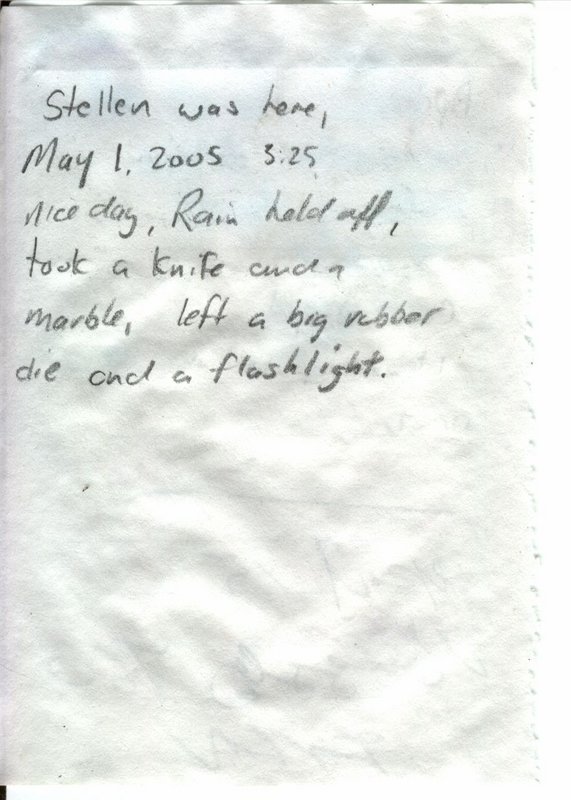 Stellen was here,
May 1, 2005 3:25
nice day, Rain held off,
took a knife and a
marble, left a big rubber
die and a flashlight.